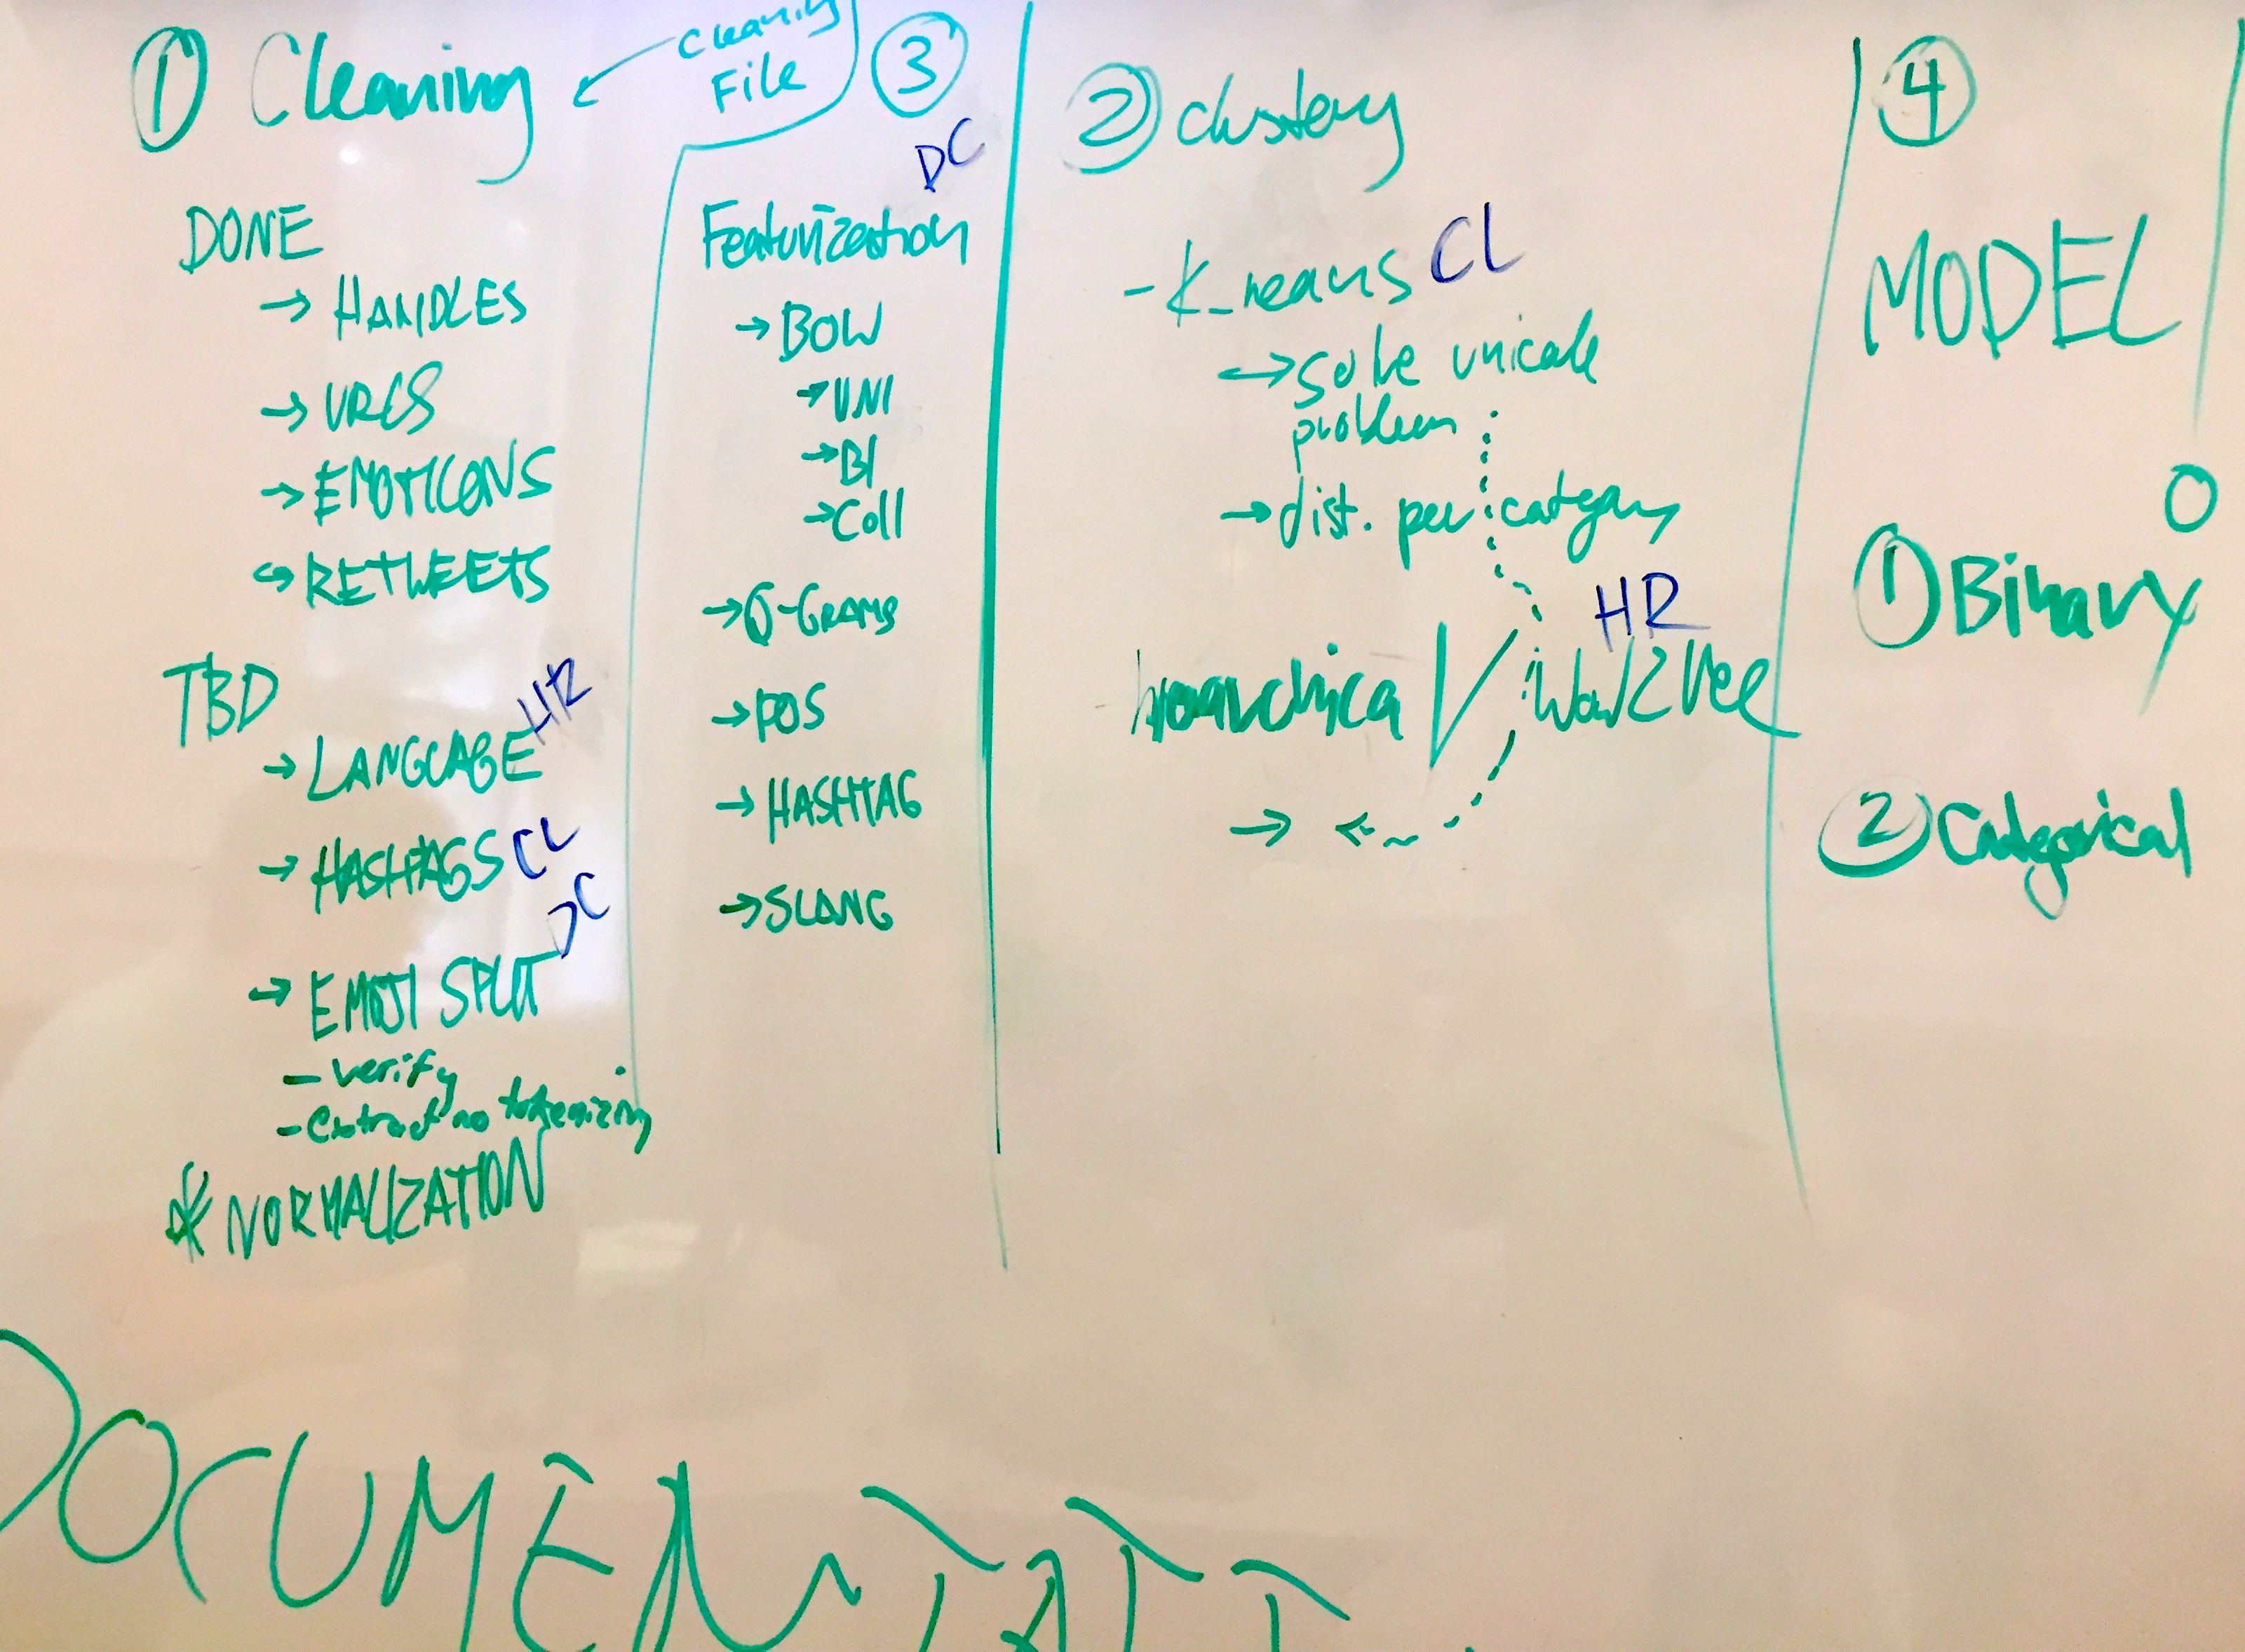 ① Cleaning
Cleaning
File
DONE
→ HANDLES
→ URLS
→ EMOTICONS
→ RETWEETS
TBD
→ LANGUAGE HR
→ HASHTAGS CL
→ EMOJI SPLIT DC
- verify
- Extract no tokenizing
* NORMALIZATION
③
DC
Featurization
→ BOW
→ UNI
→ BI
→ Coll
→ Q-GRAMS
→ POS
→ HASHTAG
→ SLANG
② clustery
- K_means CL
→ solve unicode
problem
→ dist. per category
HR
hierarchica / Word2Vec
→
④
MODEL
O
① Binary
② Categorical
DOCUMENTATI